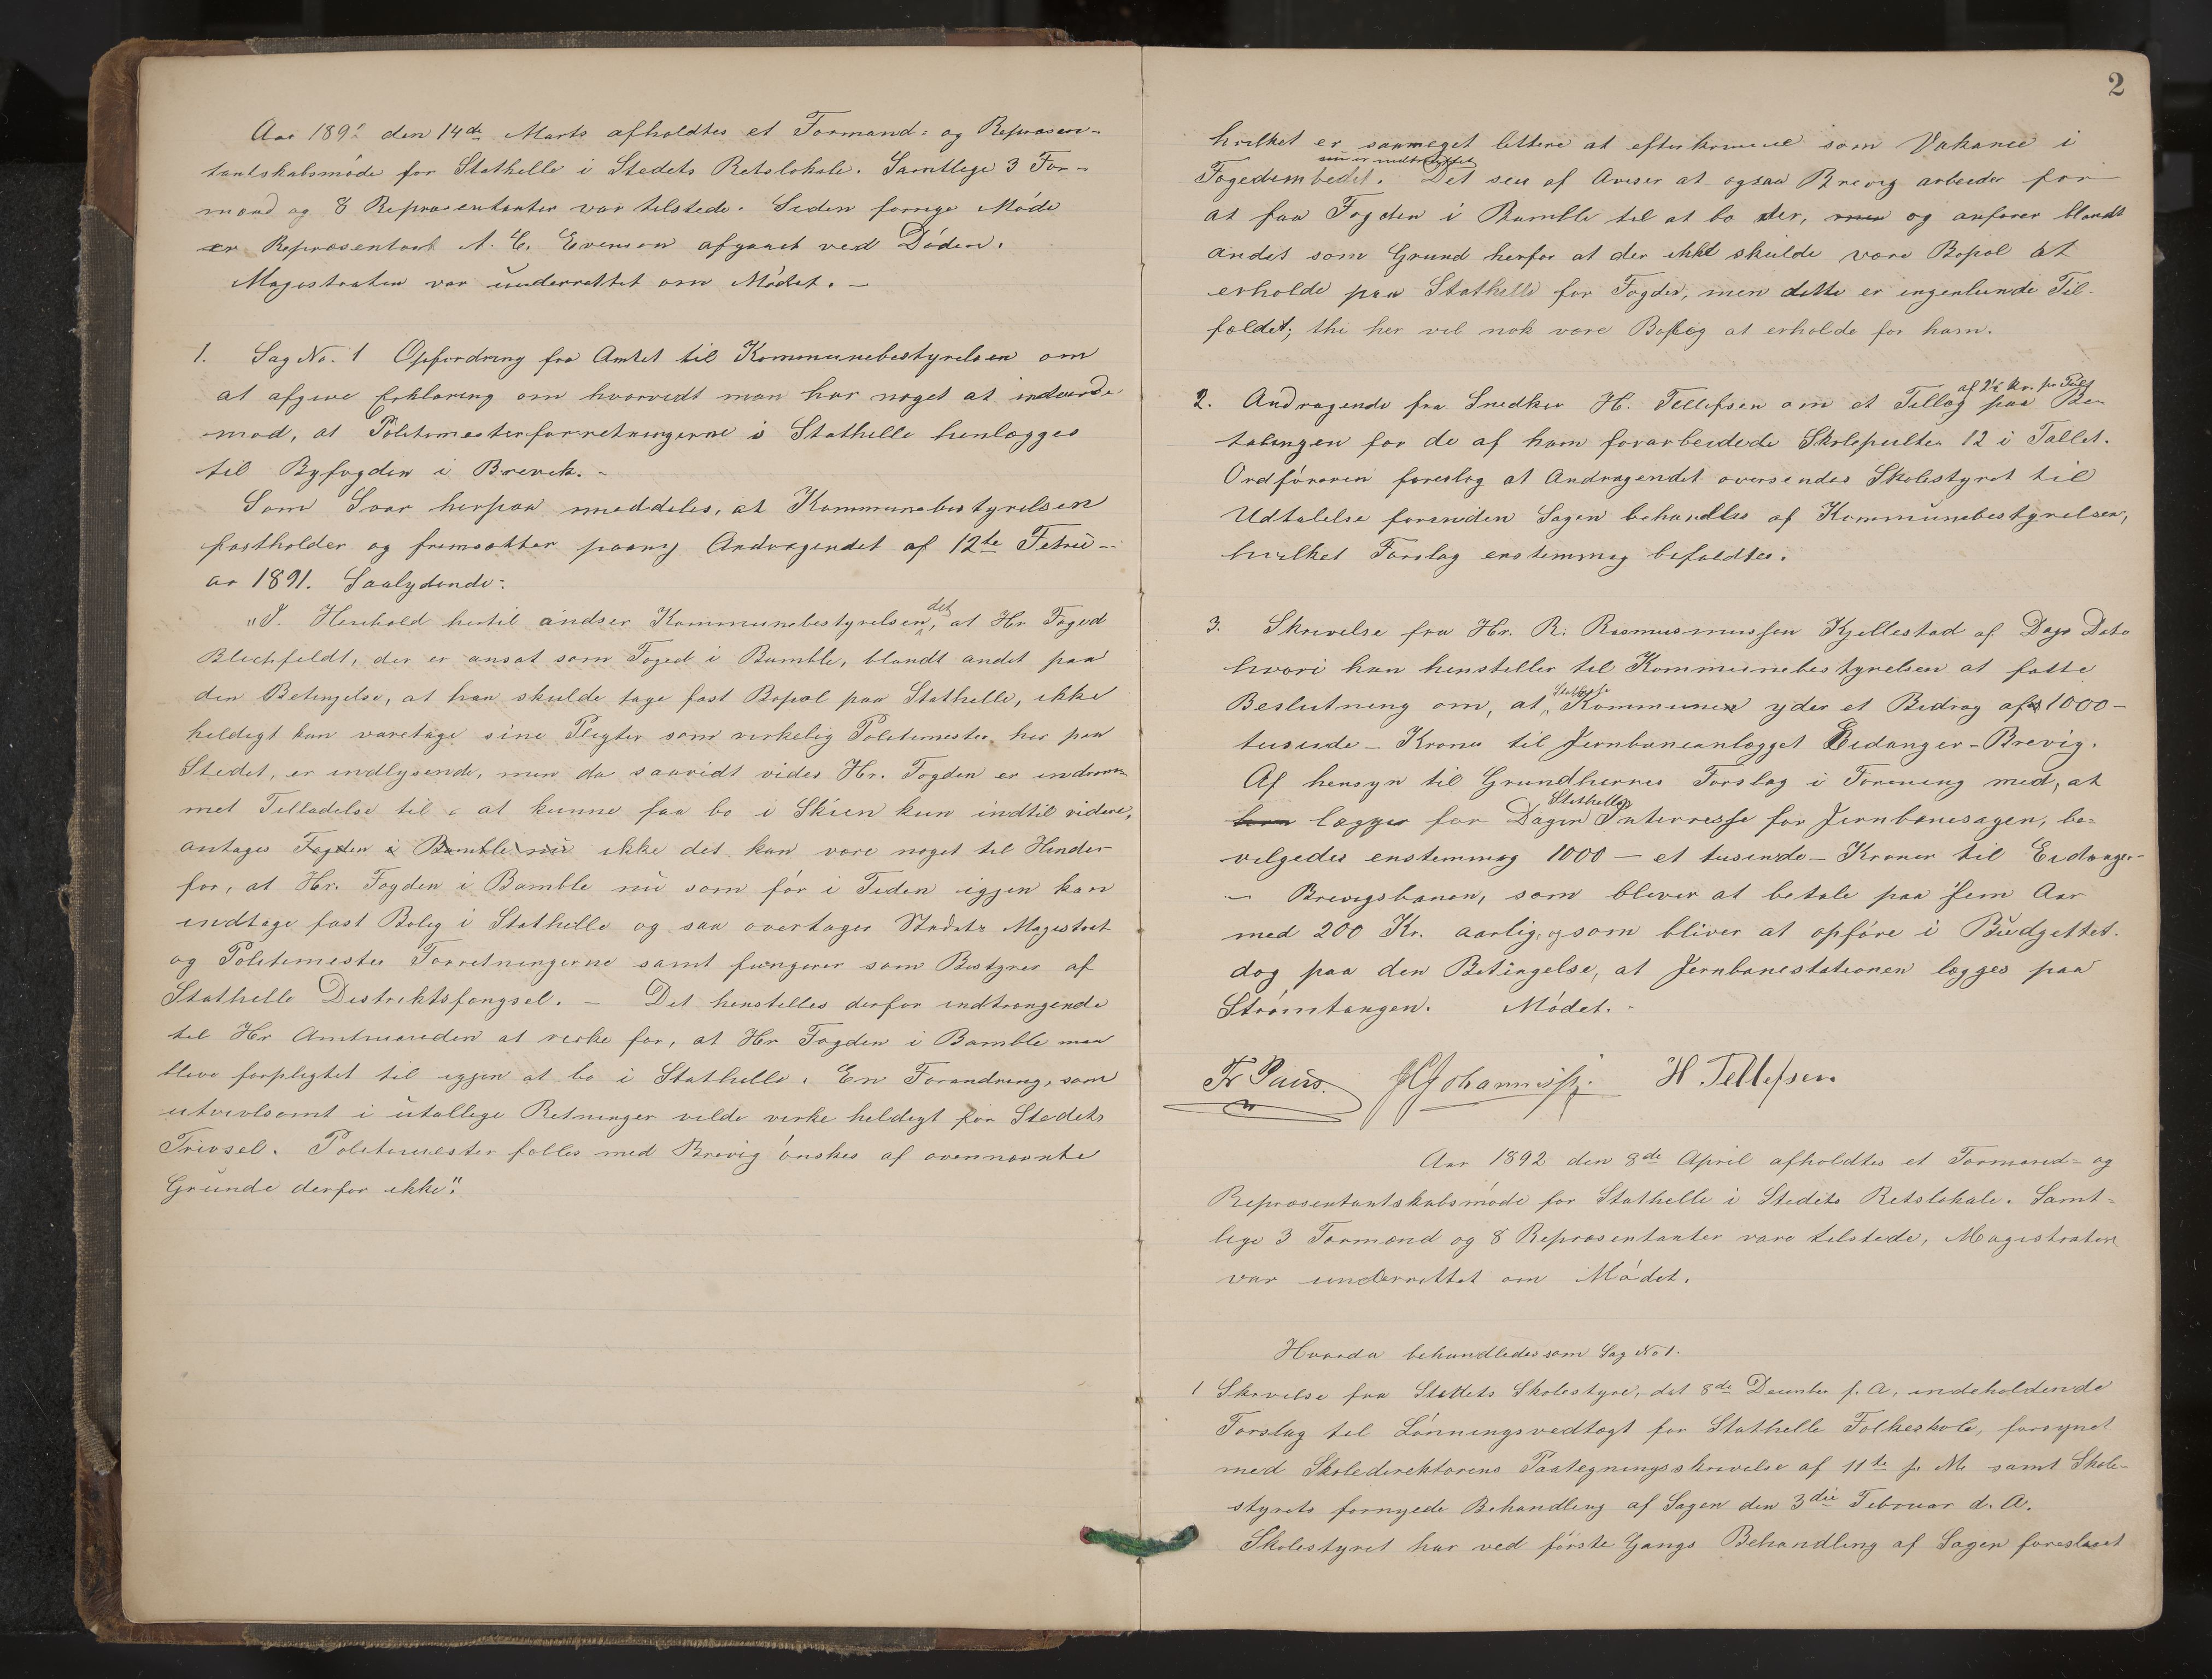 Aar 1892 den 14de Marts afholdtes et Formand= og Repræsen-
tantskabsmøde for Stathelle i Stedets Retslokale. Samtlige 3 For-
mænd og 8 Repræsentanter var tilstede. Siden forrige Møde
er Repræsentant N. C. Evensen afgaaet ved Døden.
Magistraten var underrettet om Mødet. –
1. Sag No. 1 Opfordring fra Amtet til Kommunebestyrelsen om
at afgive Erklæring om hvorvidt man har noget at indvende
mod, at Politimesterforretningerne i Stathelle henlægges
til Byfogden i Brevik. –
Som Svar herpaa meddeles, at Kommunebestyrelsen
fastholder og fremsætter paany Andragendet af 12te Febru-
ar 1891. Saalydende:
"I Henhold hertil andser Kommunebestyrelsen det, at Hr Foged
Blechfeldt, der er ansat som Foged i Bamble, blandt andet paa
den Betingelse, at han skulde tage fast Bopæl paa Stathelle, ikke
heldigt kan varetage sine Pligter som virkelig Politimester her paa
Stedet, er indlysende, men da saavidt vides Hr. Fogden er indrøm-
met Tilladelse til at kunne faa bo i Skien kun indtil videre,
antages Fogden i Bamble nu ikke det kan være noget til Hinder
for, at Hr. Fogden i Bamble nu som før i Tiden igjen kan
indtage fast Bolig i Stathelle og saa overtager Stedets Magistrat
og Politimester Forretningerne samt fungerer som Bestyrer af
Stathelle Distriktsfængsel. – Det henstilles derfor indtrængende
til Hr Amtmanden at virke for, at Hr Fogden i Bamble maa
blive forpligtet til igjen at bo i Stathelle. En Forandring, som
utvivlsomt i utallige Retninger vilde virke heldigt for Stedets
Trivsel. Politimester fælles med Brevig ønskes af ovennævnte
Grunde derfor ikke".
2
hvilket er saameget lettere at efterkomme som Vakance i
nu er indtruffet
Fogedembedet. Det sees af Aviser at ogsaa Brevig arbeider for
at faa Fogden i Bamble til at bo der, men og anfører blandt
andet som Grund herfor at der ikke skulde være Bopæl at
erholde paa Stathelle for Fogder, men dette er ingenlunde Til-
fældet; thi her vil nok være Bolig at erholde for ham.
af 2½ Kr. pr Pult
2. Andragende fra Snedker H. Tellefsen om et Tillæg paa Be-
talingen for de af ham forarbeidede Skolepulter 12 i Tallet.
Ordføreren foreslog at Andragendet oversendes Skolestyret til
Udtalelse forinden Sagen behandles af Kommunebestyrelsen,
hvilket Forslag enstemmig bifaldtes.
3. Skrivelse fra Hr. R. Rasmusmussen Kjellestad af Dags Dato
hvori han henstiller til Kommunebestyrelsen at fatte
Stathelle
Beslutning om, at Kommunen yder et Bidrag af 1000 –
tusinde – Kroner til Jernbaneanlægget Eidanger – Brevig.
Af hensyn til Grundeiernes Forslag i Forening med, at
Stathelle
han lægger for Dagen Interresse for Jernbanesagen, be-
vilgedes enstemmig 1000 – et tusinde – Kroner til Eidanger-
– Brevigsbanen, som bliver at betale paa fem Aar
med 200 Kr. aarlig, og som bliver at opføre i Budgettet.
dog paa den Betingelse, at Jernbanestationen lægges paa
Strømtangen. Mødet. –
Fr Paus. H. Tellefsen
Aar 1892 den 8de April afholdtes et Formand= og
Repræsentantskabsmøde for Stathelle i Stedets Retslokale. Samt-
lige 3 Formænd og 8 Repræsentanter vare tilstede, Magistraten
var underrettet om Mødet.
Hvorda behandledes som Sag No 1.
1 Skrivelse fra Stedets Skolestyre, dat 8de December f. A, indeholdende
Forslag til Lønningsvedtægt for Stathelle Folkeskole, forsynet
med Skoledirektørens Paategningsskrivelse af 11te f. M. samt Skole-
styrets fornyede Behandling af Sagen den 3die Februar d. A.
Skolestyret har ved første Gangs Behandling af Sagen foreslaaet